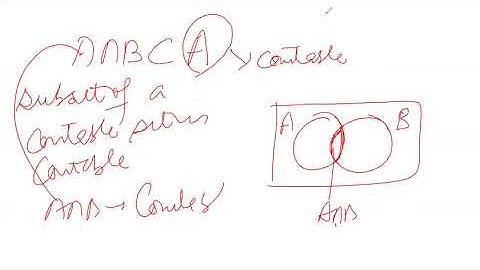 A∩B⊂A → countable
subset of a
countable set is
countable
A∩B →
A B
A∩B